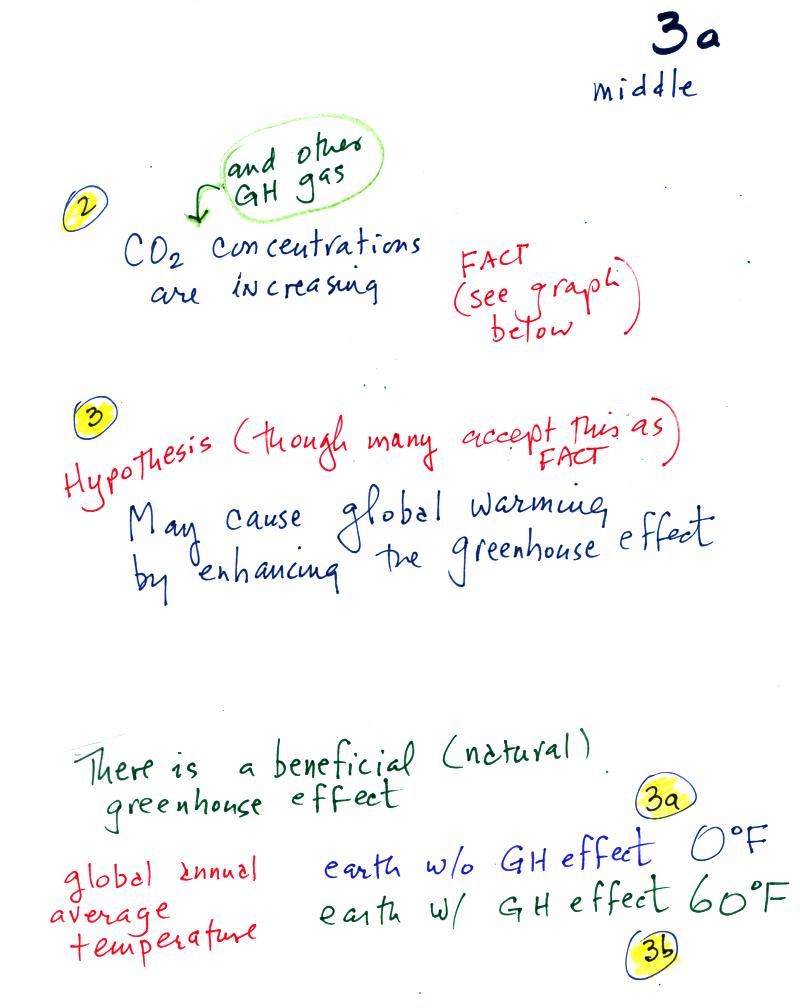 3a
middle
and other
GH gas
2
CO₂ concentrations
are increasing
FACT
(see graph)
below
3
Hypothesis (though many accept this as)
FACT
May cause global warming
by enhancing the greenhouse effect
There is a beneficial (natural)
greenhouse effect
3a
global annual
average
temperature
earth w/o GH effect 0°F
earth w/ GH effect 60°F
3b